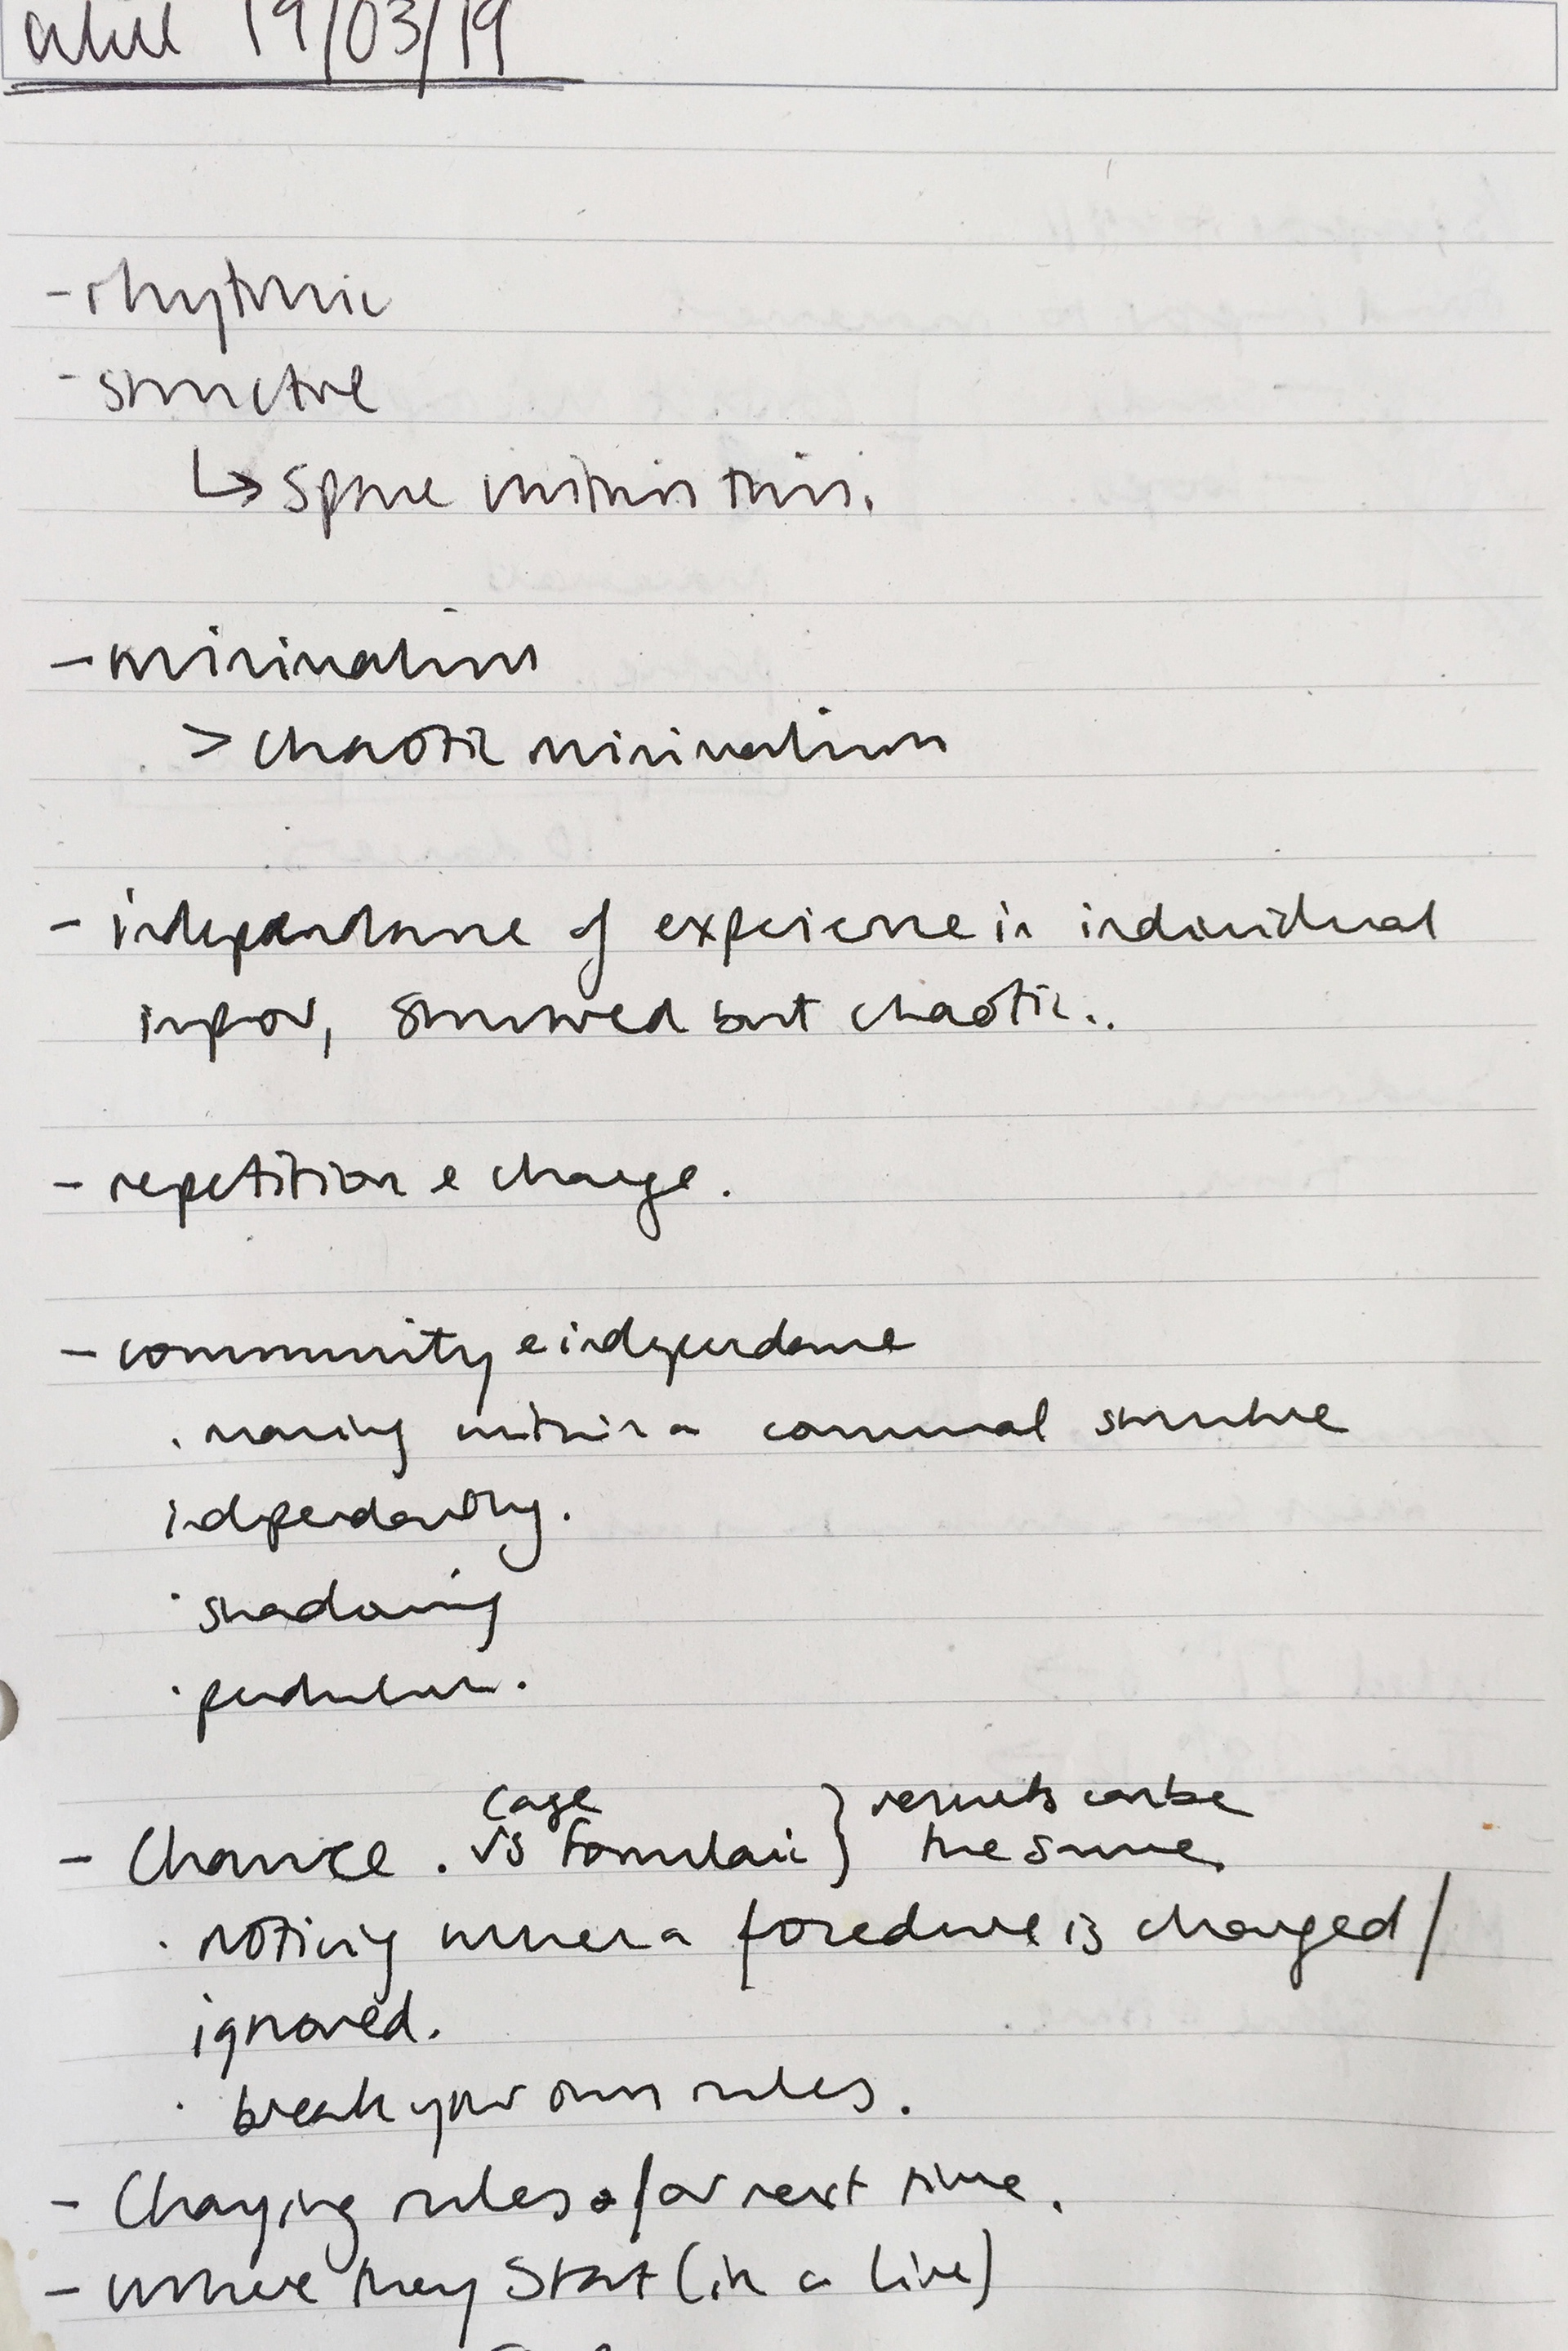 19/03/19
- rhytmic
- structure
↳ space within this.
- minimalism
> chaotic minimalism
- independance of experience in individual
improv, structured but chaotic..
- repetition & change.
- community & independance
. moving within a communal structure
independantly.
· shadowing
· pendulum.
cage } results can be
- Chance . vs formulaic } the same.
· noticing when a procedure is changed /
ignored.
· break your own rules.
- Changing rules for next time.
- where they start (in a line)